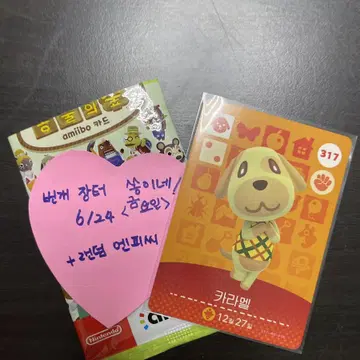 amiibo 카드
번개 장터 쏭이네!
6/24 <금요일>
+랜덤 엔피씨
Nintendo
317
카라멜
12월 27일